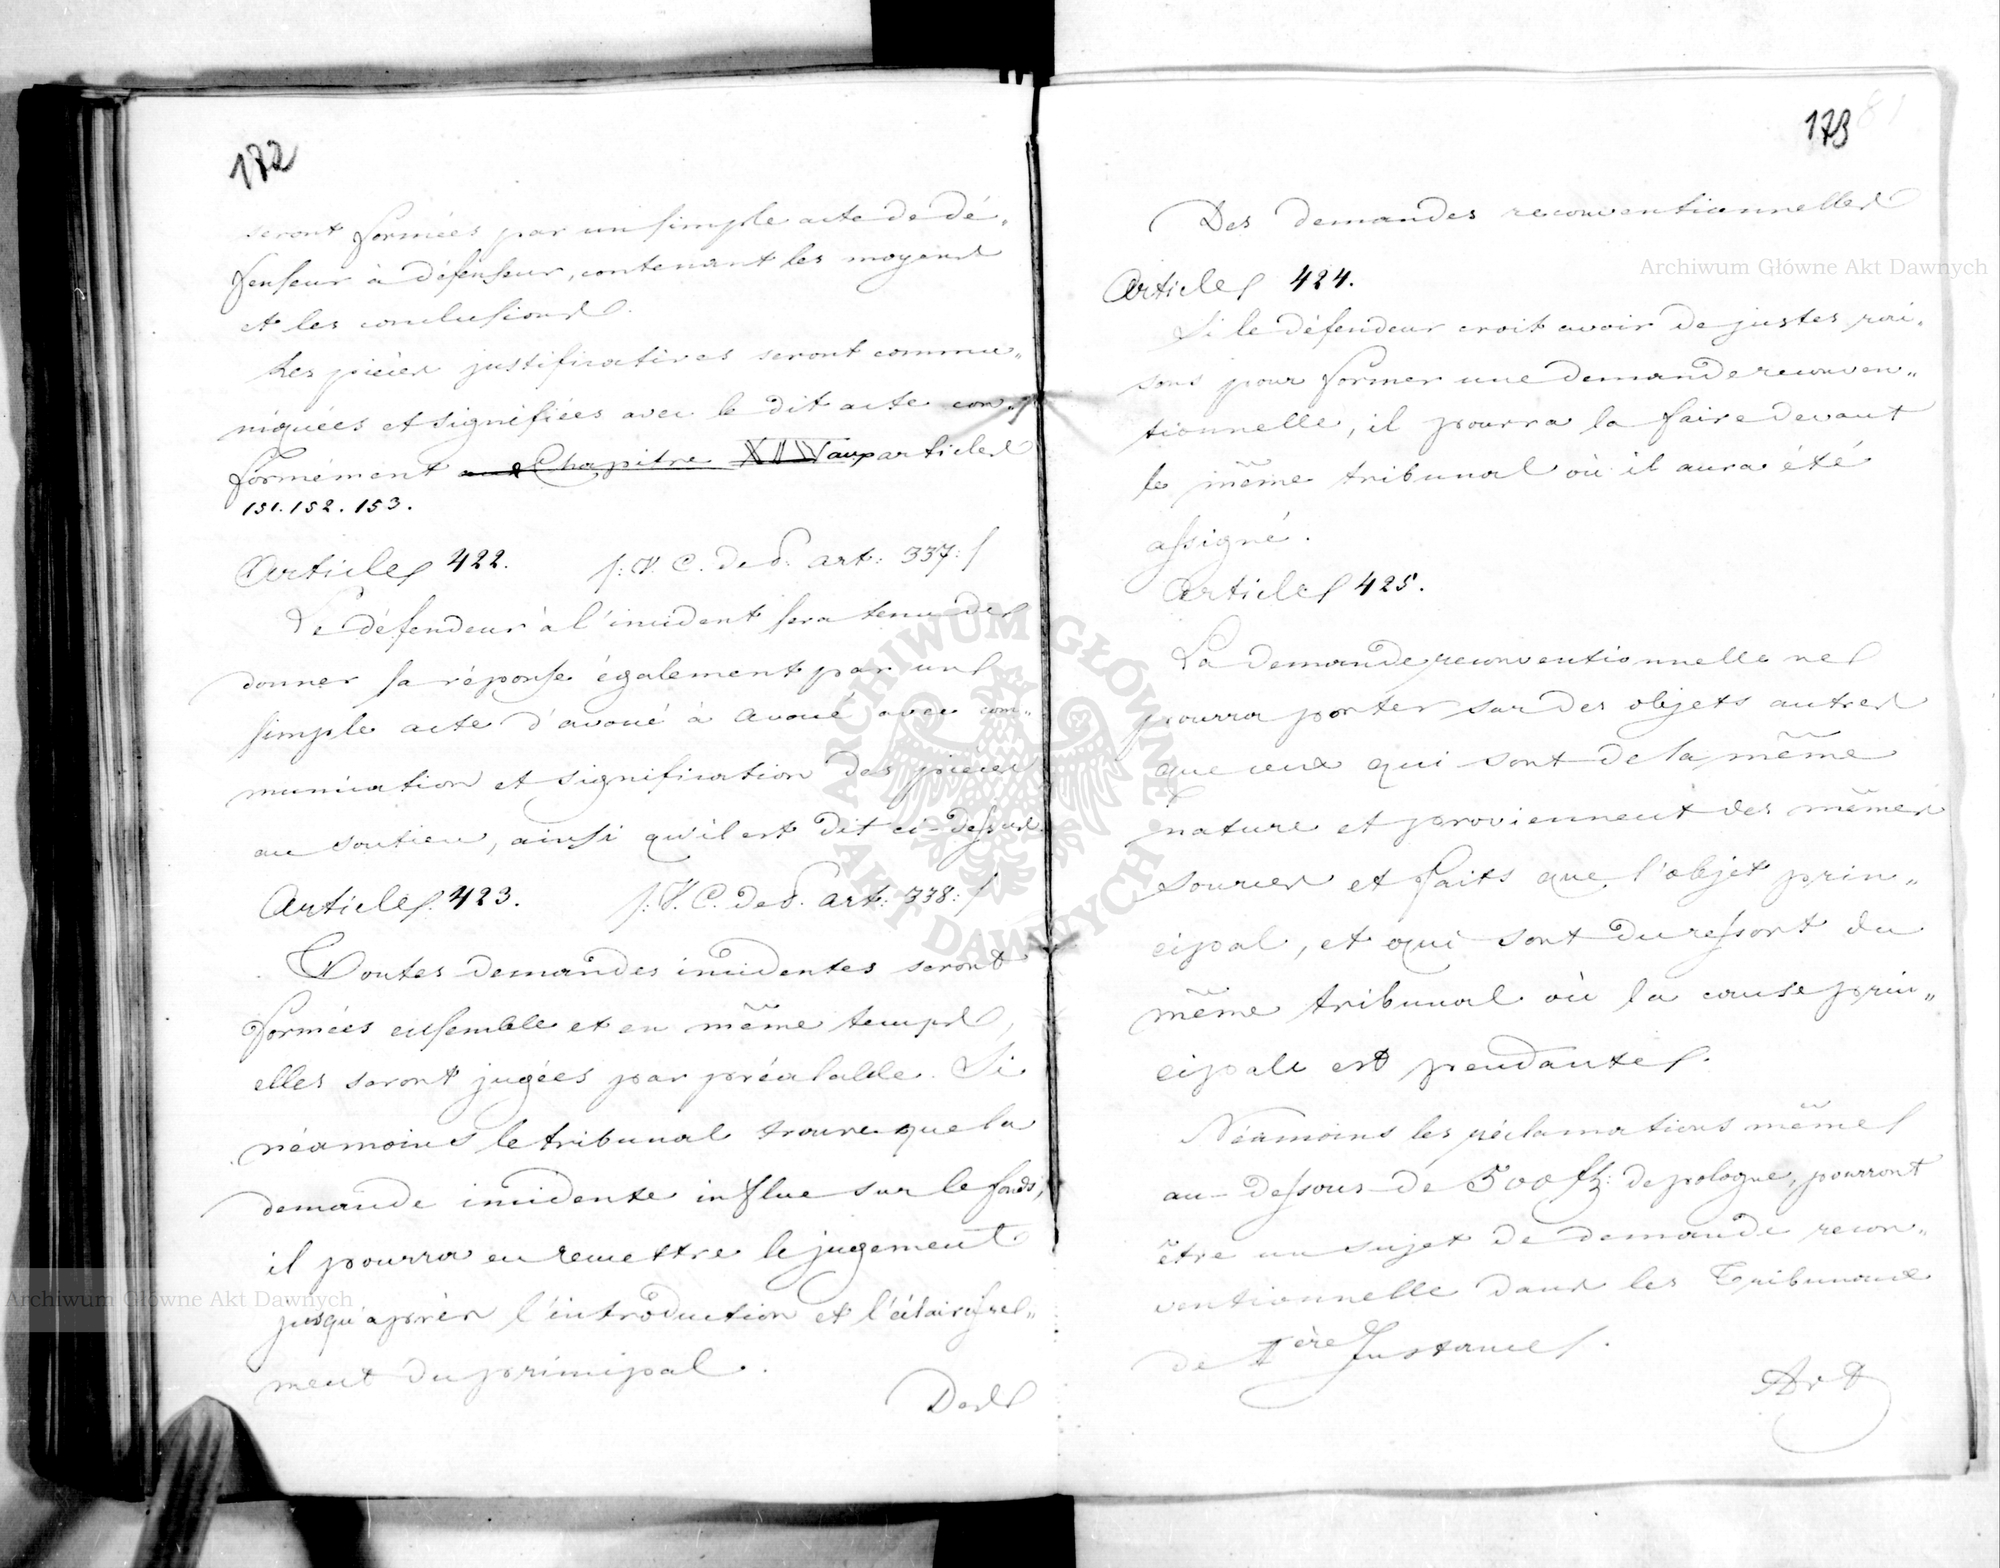 172
seront formées par un simple acte de dé„
fenseur à défenseur, contenant les moyens
et les conclusions.
Les pièces justificatives seront commu„
niquées et signifiées avec le dit acte con„
formément au Chapitre XIIV aux articles
151. 152. 153.
Article 422. /: V. C. de P. art: 337:/
Le défendeur à l'incident sera tenu de
donner sa réponse également par un
simple acte d'avoué à avoué avec com„
munication et signification des pièces
au soutien, ainsi qu'il est dit ci-dessus
Article 423. /: V. C. de P. art: 338:/
Toutes demandes incidentes seront
formées ensemble et en même temps,
elles seront jugées par préalable. Si
néamoins le tribunal trouve que la
demande incidente influe sur le fonds,
il pourra en remettre le jugement
jusqu'après l'introduction et l'éclaircisse„
ment du principal.
Des
173
81
Des demandes reconventionnelles
Article 424.
Si le défendeur croit avoir de justes rai„
sons pour former une demande reconven„
tionnelle, il pourra la faire devant
le même tribunal où il aura été
assigné.
Article 425.
La demande reconventionnelle ne
pourra porter sur des objets autres
que ceux qui sont de la même
nature et proviennent des mêmes
sources et faits que l'objet prin„
cipal, et qui sont du ressort du
même tribunal où la cause prin„
cipale est pendante.
Néamoins les réclamations même
au-dessous de 500 fl: de pologne, pourront
être un sujet de demande recon„
ventionnelle dans les Tribunaux
de 1ère Instance.
Art
Archiwum Główne Akt Dawnych
Archiwum Główne Akt Dawnych
ARCHIWUM GŁÓWNE AKT DAWNYCH